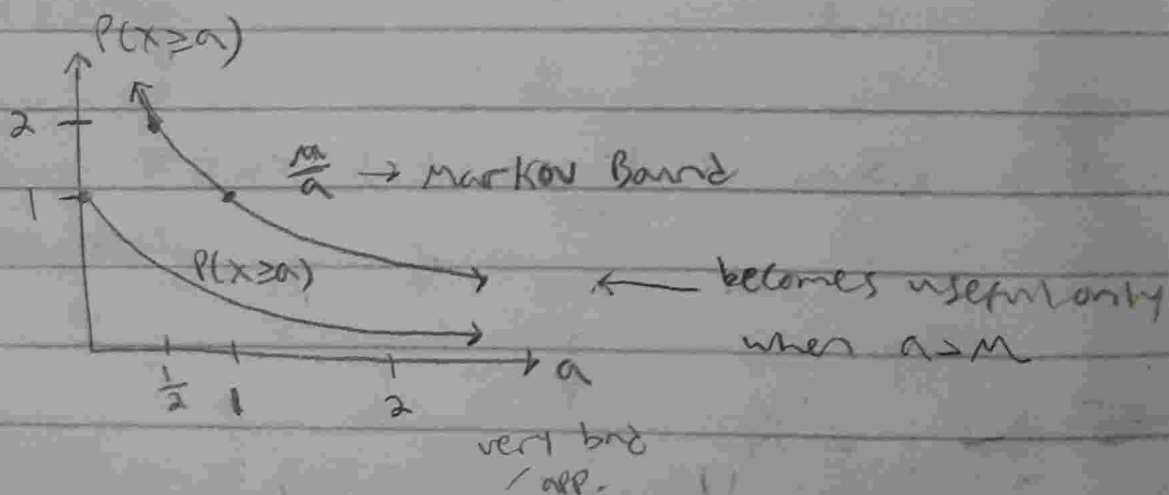 P(x≥a)
2
μ/a → Markov Bound
1
P(x≥a)
← becomes useful only
when a>μ
a
1/2 1 2
very bad
/ app.